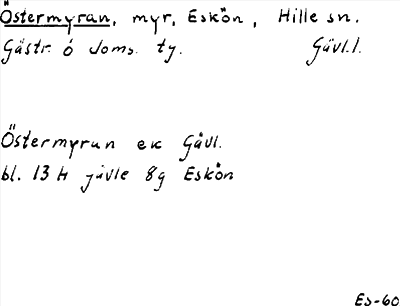 Östermyran, myr, Eskön, Hille sn.
Gästr. ö doms. ty. Gävl.l.
Östermyran ek Gävl.
bl. 13 H jävle 8g Eskön
Es-60